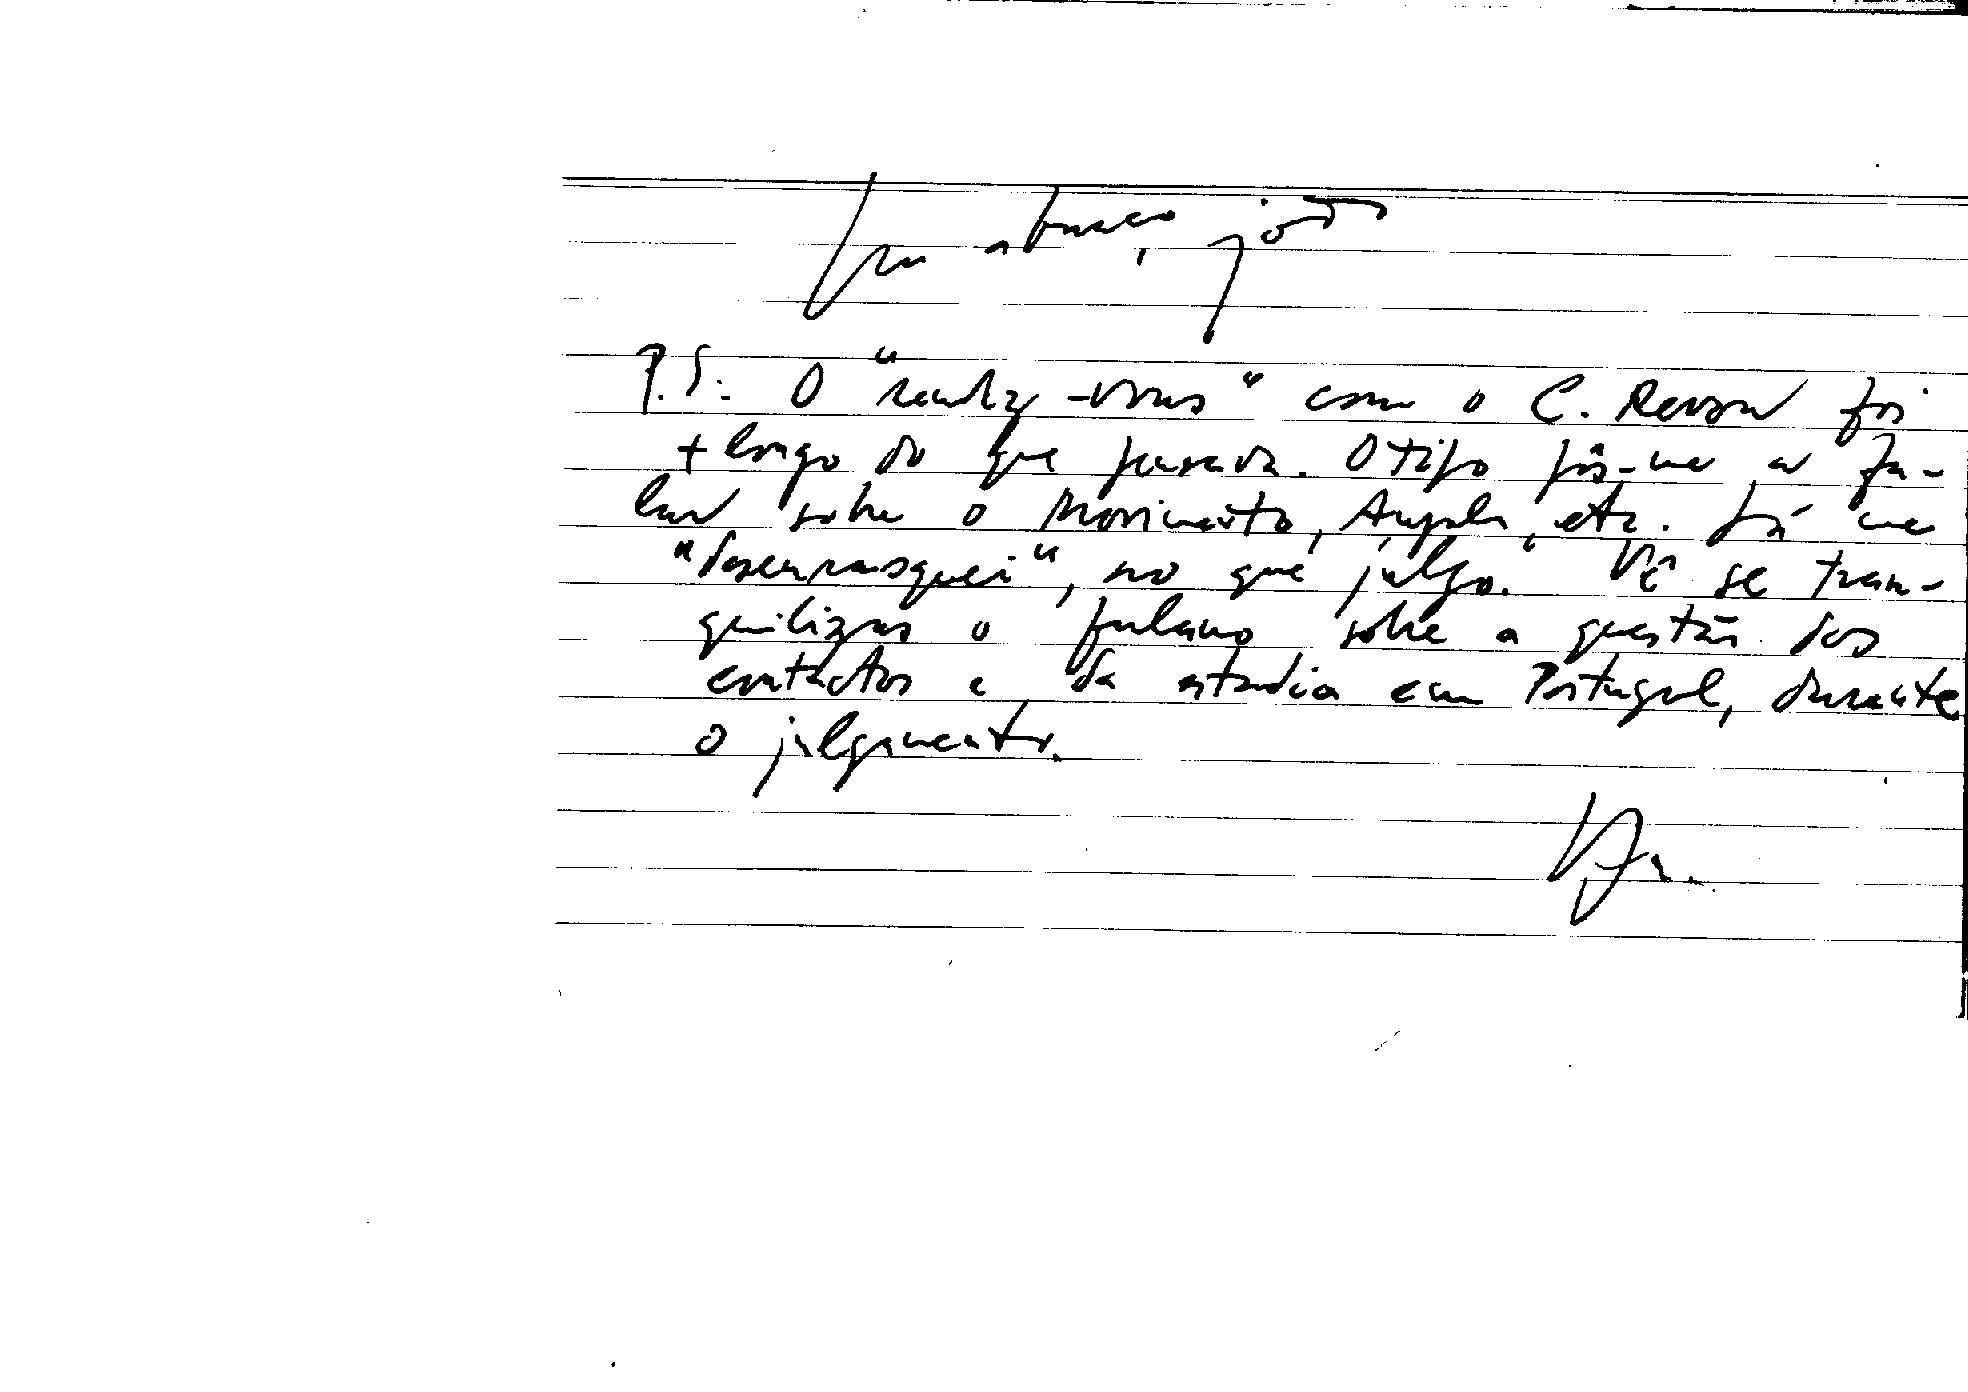 Um abraço, João
P.S. O "rendez-vous" com o C. Revson foi
+ longo do que pensava. O tipo pôs-me a fa-
lar sobre o Movimento, Angola, etc. Já me
"desenrasquei", no que julgo. Vê se tran-
quilizas o fulano sobre a questão dos
contactos e da estadia em Portugal, durante
o julgamento.